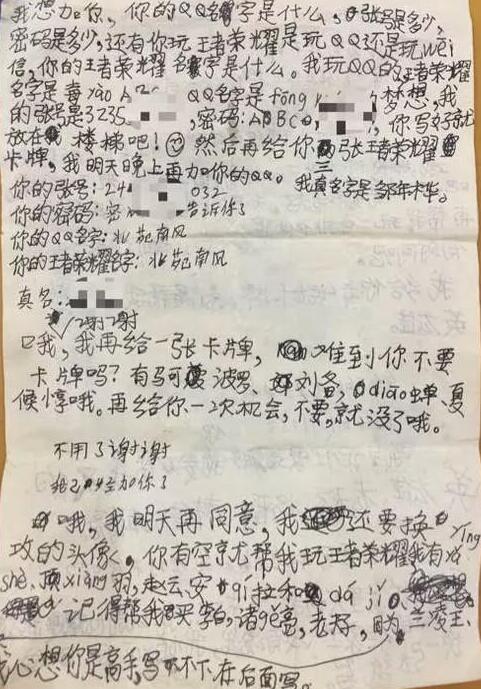 我想加你，你的QQ名字是什么，张号是多少，
密码是多少，还有你玩王者荣耀是玩QQ还是玩wēi
信，你的王者荣耀名字是什么。我玩QQ的王者荣耀
名字是 yào QQ名字是fōng 梦想，我
的张号是3235 ，密码：ABC ，你写好就
放在 楼梯吧！然后再给你三张王者荣耀
卡牌，我明天晚上再加你的QQ。 我真名字是 年华。
你的张号：24 032
你的密码：密 告诉你了
你的QQ名字：北苑南风
你的王者荣耀名字：北苑南风
真名：
谢谢
哦，我再给一张卡牌， 难到你不要
卡牌吗？有马可波罗、刘备，diāo蝉、夏
候惇哦。再给你一次机会，不要，就没了哦。
不用了谢谢
加你了
哦，我明天再同意，我还要换 yīng
攻的头像，你有空就帮我玩王者荣耀我有yà
shè、项xiàng羽，赵云，安qí拉和dá jǐ、
记得帮我买李白，诸gě亮，老好，因为兰凌王、
心想你是高手，写不下，在后面写。